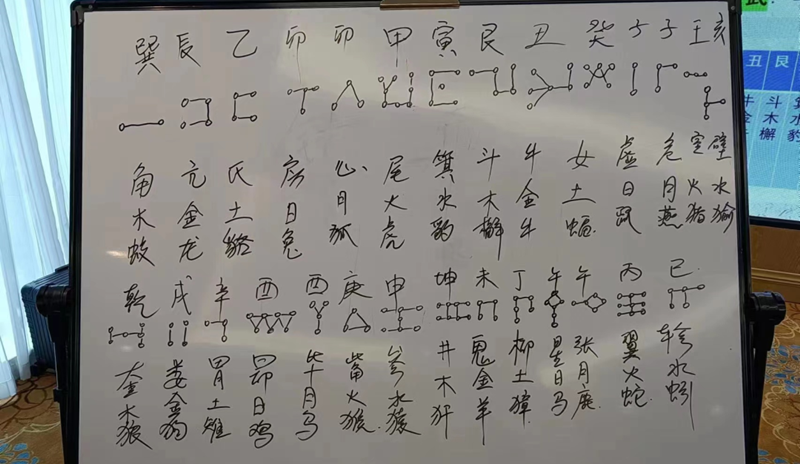 巽 辰 乙 卯 卯 甲 寅 艮 丑 癸 子 子 壬 亥
角木蛟
亢金龙
氐土貉
房日兔
心月狐
尾火虎
箕水豹
斗木獬
牛金牛
女土蝠
虚日鼠
危月燕
室火猪
壁水貐
乾 戌 辛 酉 酉 庚 申 坤 未 丁 午 午 丙 巳
奎木狼
娄金狗
胃土雉
昴日鸡
毕月乌
觜火猴
参水猿
井木犴
鬼金羊
柳土獐
星日马
张月鹿
翼火蛇
轸水蚓
丑 艮
斗木獬
水豹